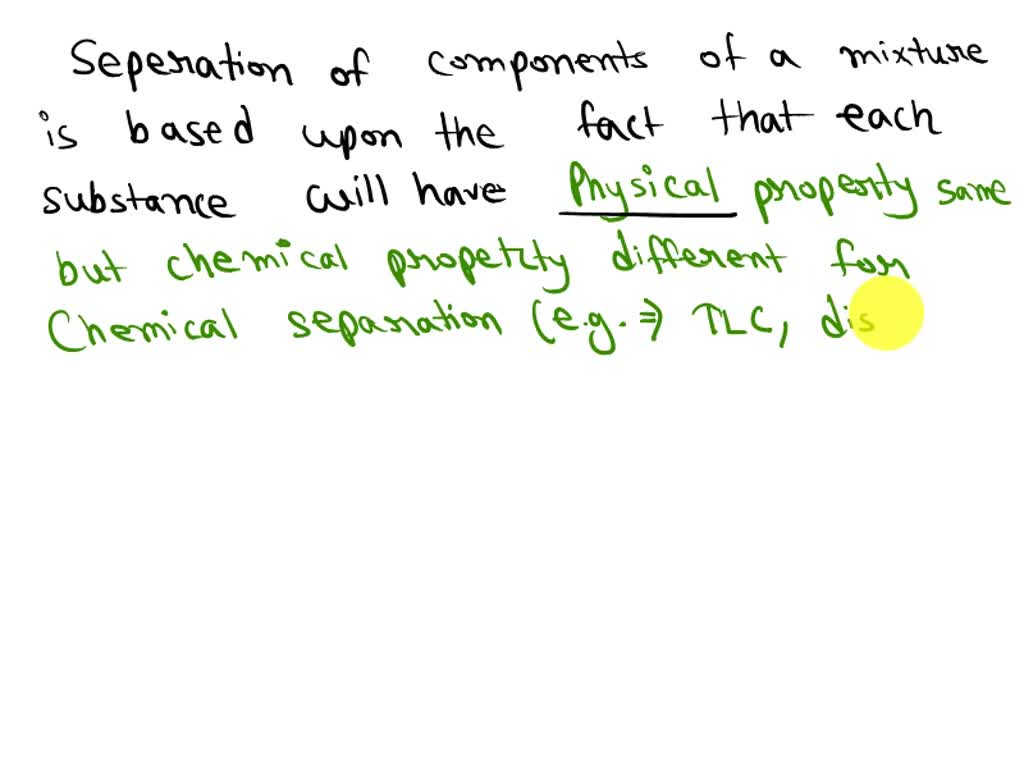 Seperation of components of a mixture
is based upon the fact that each
substance will have Physical property same
but chemical propetrty different for
Chemical separation (e.g. ⇒ TLC, dis